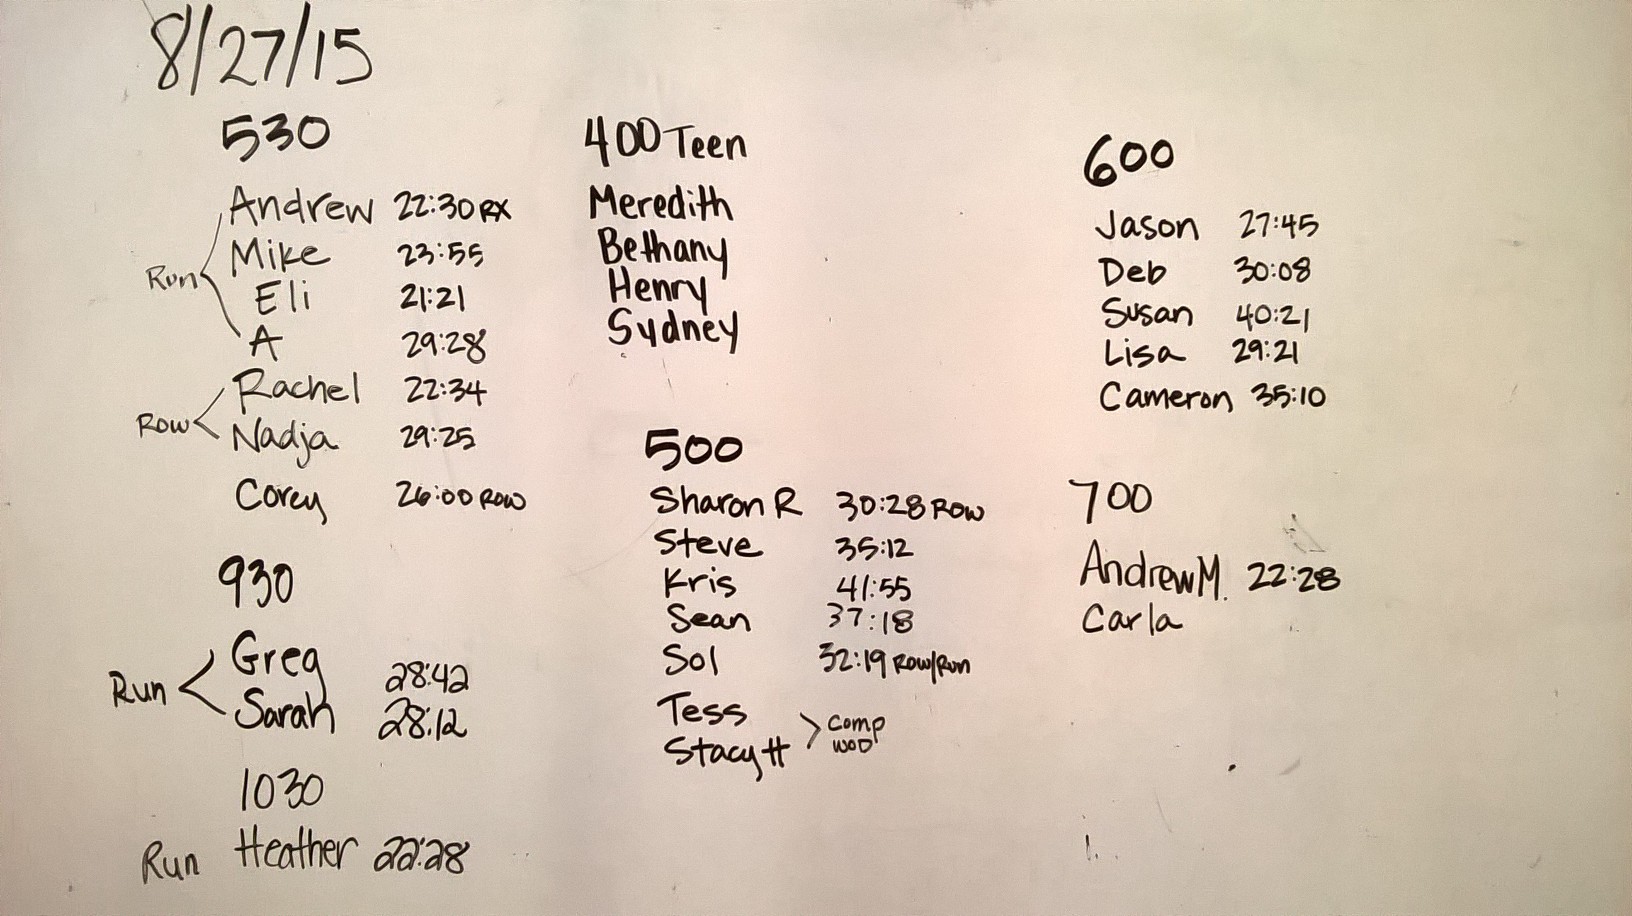 8/27/15
530
Andrew 22:30 RX
Mike 23:55
Run
Eli 21:21
A 29:28
Rachel 22:34
Row
Nadja 29:25
Corey 26:00 ROW
930
Greg 28:42
Run
Sarah 28:12
1030
Run Heather 22:28
400 Teen
Meredith
Bethany
Henry
Sydney
500
Sharon R 30:28 ROW
Steve 35:12
Kris 41:55
Sean 37:18
Sol 32:19 ROW/Run
Tess
Comp
WOD
Stacy H
600
Jason 27:45
Deb 30:08
Susan 40:21
Lisa 29:21
Cameron 35:10
700
Andrew M. 22:28
Carla